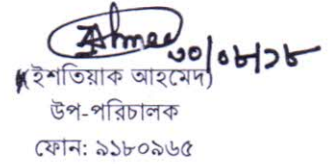 Ahmed ৩০/০৮/১৮
(ইশতিয়াক আহমেদ)
উপ-পরিচালক
ফোন: ৯১৮০৯৬৫